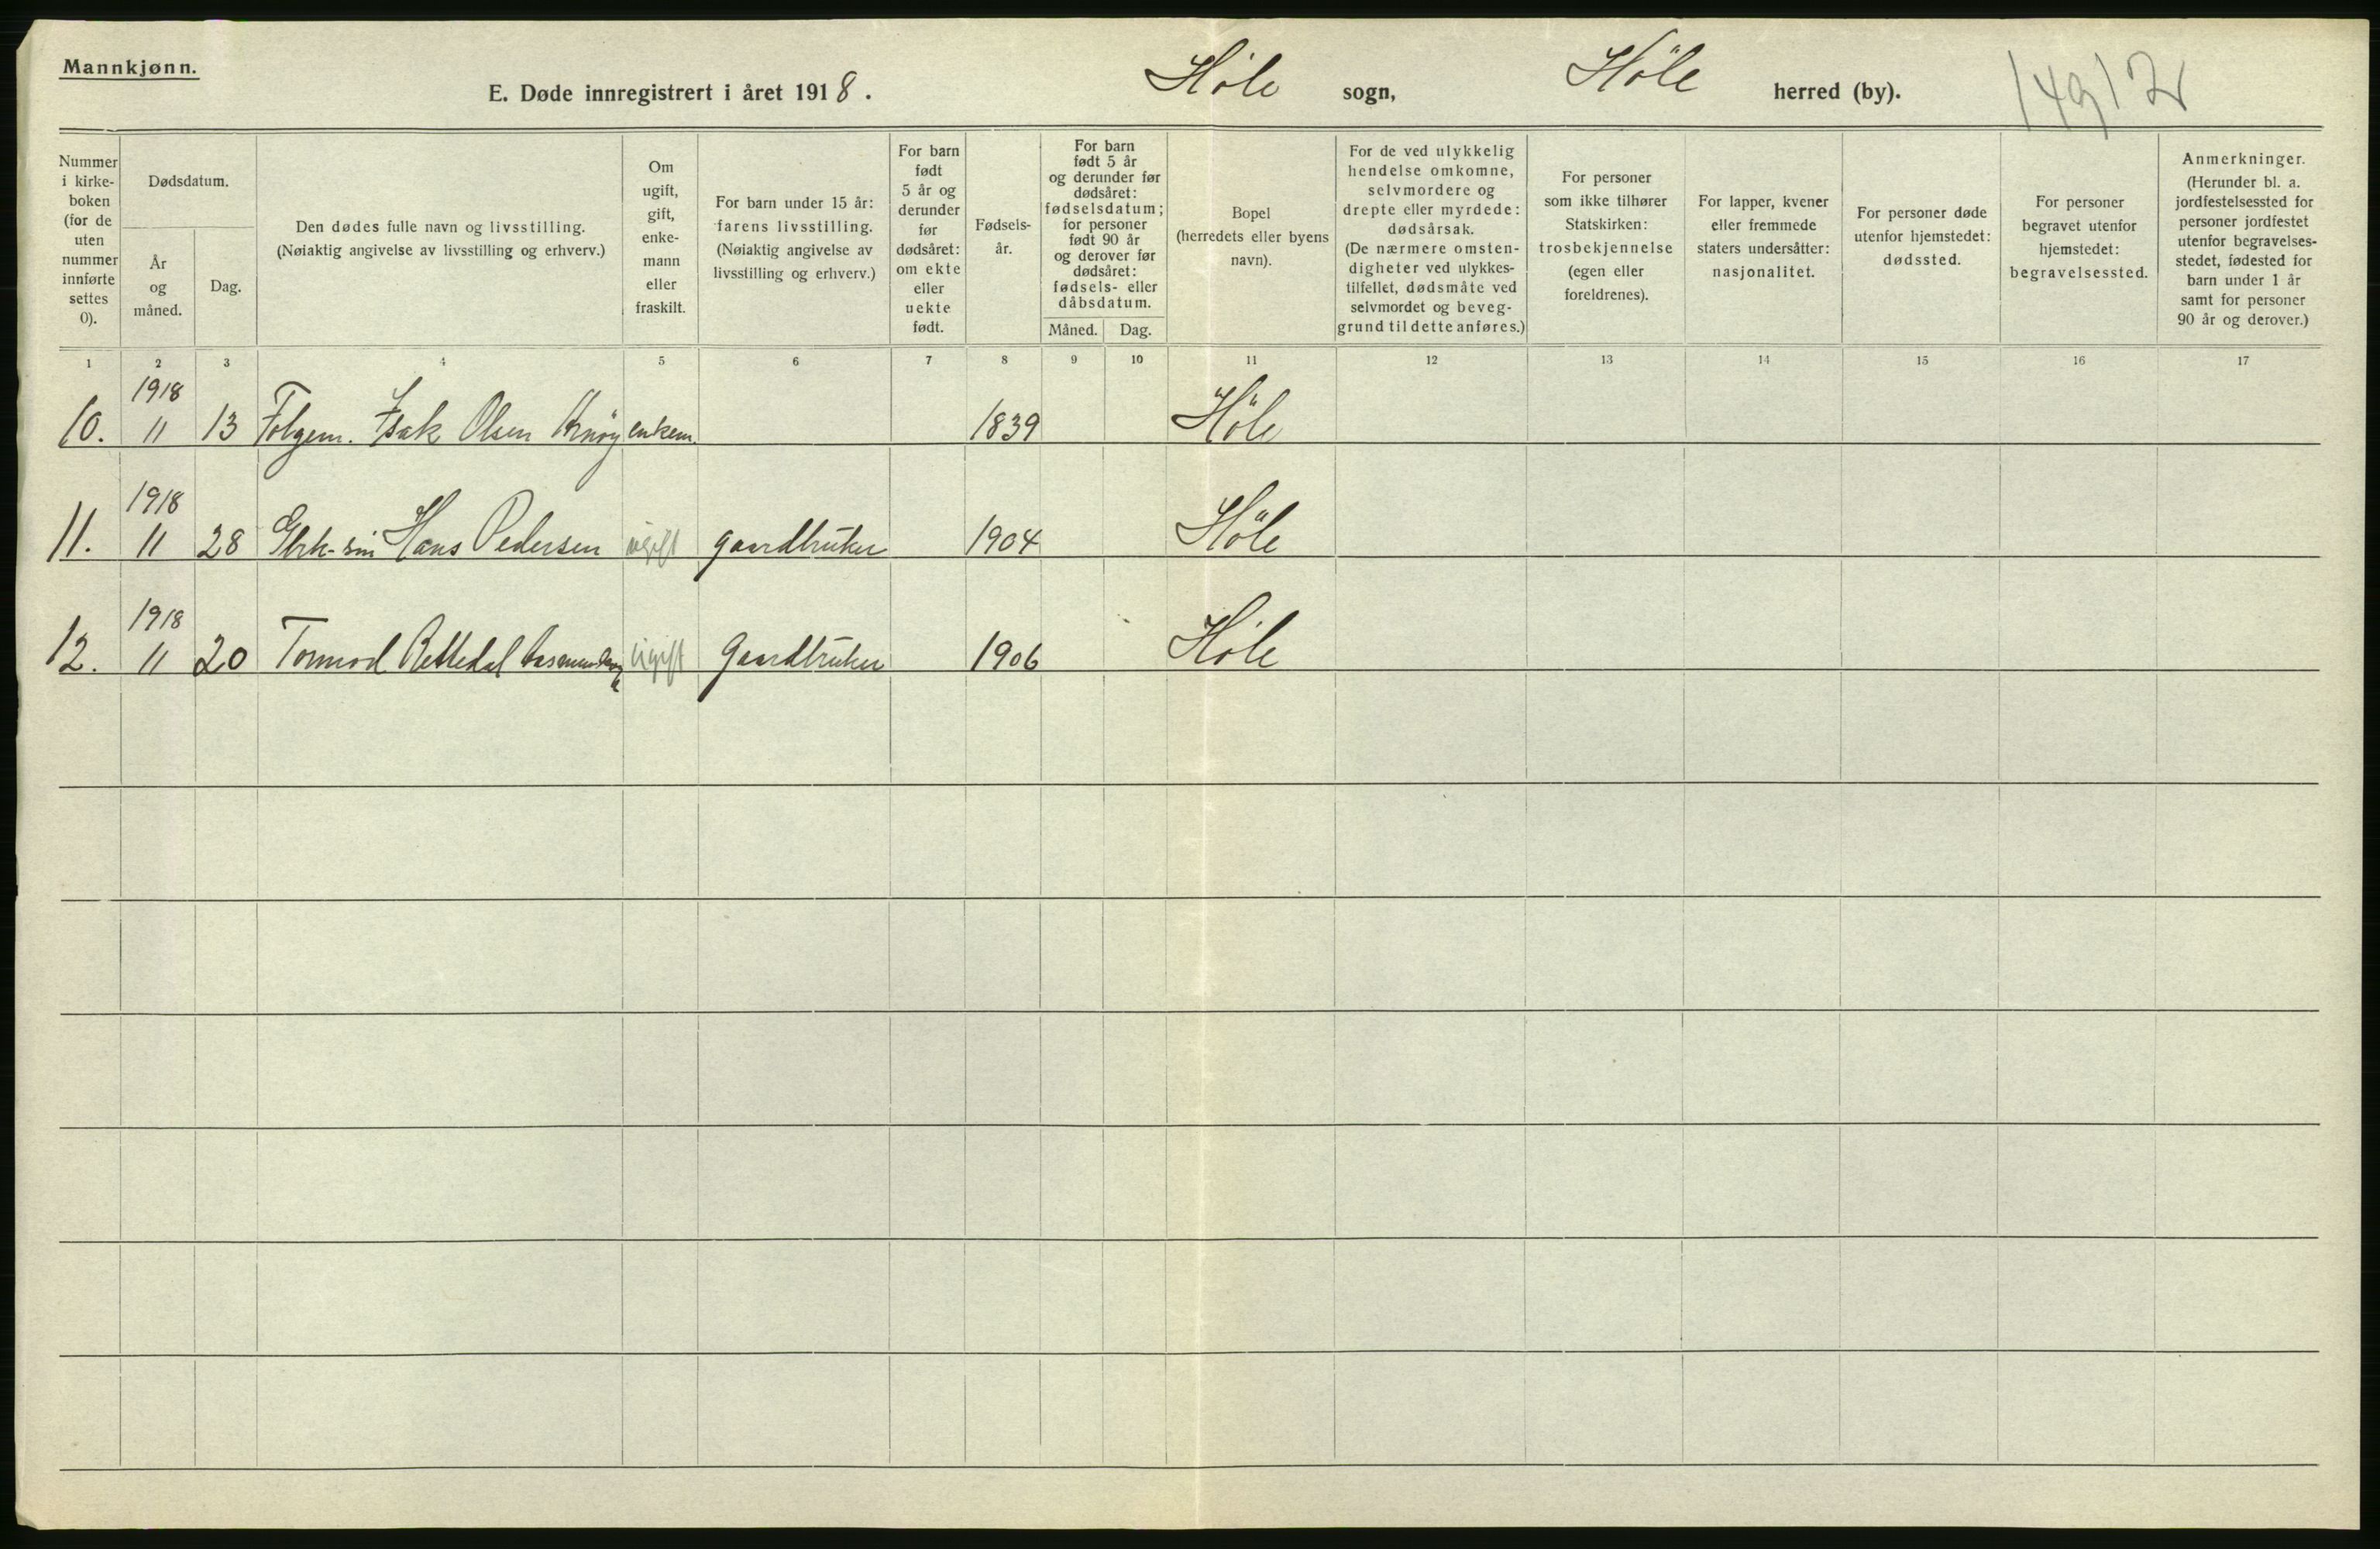 Mannkjønn.
E. Døde innregistrert i året 1918. Höle sogn, Höle herred (by). 149 | 2
Nummer i kirke- boken (for de uten nummer innførte settes 0).
Dødsdatum.
År og måned.
Dag.
Den dødes fulle navn og livsstilling.
(Nøiaktig angivelse av livsstilling og erhverv.)
Om ugift, gift, enke- mann eller fraskilt.
For barn under 15 år: farens livsstilling.
(Nøiaktig angivelse av livsstilling og erhverv.)
For barn født 5 år og derunder før dødsåret: om ekte eller uekte født.
Fødsels- år.
For barn født 5 år og derunder før dødsåret: fødselsdatum; for personer født 90 år og derover før dødsåret: fødsels- eller dåbsdatum.
Måned. Dag.
Bopel (herredets eller byens navn).
For de ved ulykkelig hendelse omkomne, selvmordere og drepte eller myrdede: dødsårsak.
(De nærmere omsten- digheter ved ulykkes- tilfellet, dødsmåte ved selvmordet og beveg- grund til dette anføres.)
For personer som ikke tilhører Statskirken: trosbekjennelse (egen eller foreldrenes).
For lapper, kvener eller fremmede staters undersåtter: nasjonalitet.
For personer døde utenfor hjemstedet: dødssted.
For personer begravet utenfor hjemstedet: begravelsessted.
Anmerkninger.
(Herunder bl. a. jordfestelsessted for personer jordfestet utenfor begravelses- stedet, fødested for barn under 1 år samt for personer 90 år og derover.)
1 2 3 4 5 6 7 8 9 10 11 12 13 14 15 16 17
1918
10. 11 13 Folgem. Isak Olsen enkem. 1839 Höle
1918
11. 11 28 Gbrk-sön Hans Pedersen ugift gaardbruker 1904 Höle
1918
12. 11 20 Tormod Rettedal ugift Gaardbruker 1906 Höle